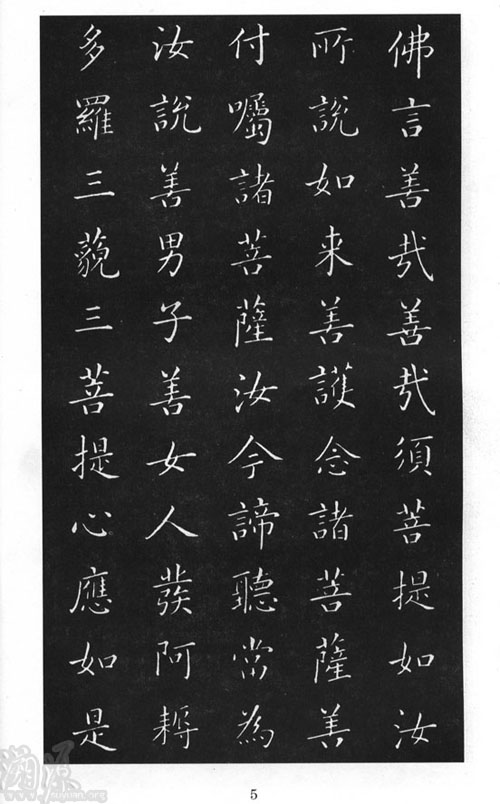 佛言善哉善哉須菩提如汝
所說如来善護念諸菩薩善
付囑諸菩薩汝今諦聽當為
汝說善男子善女人發阿耨
多羅三藐三菩提心應如是
5
溯源
www.suyuan.org